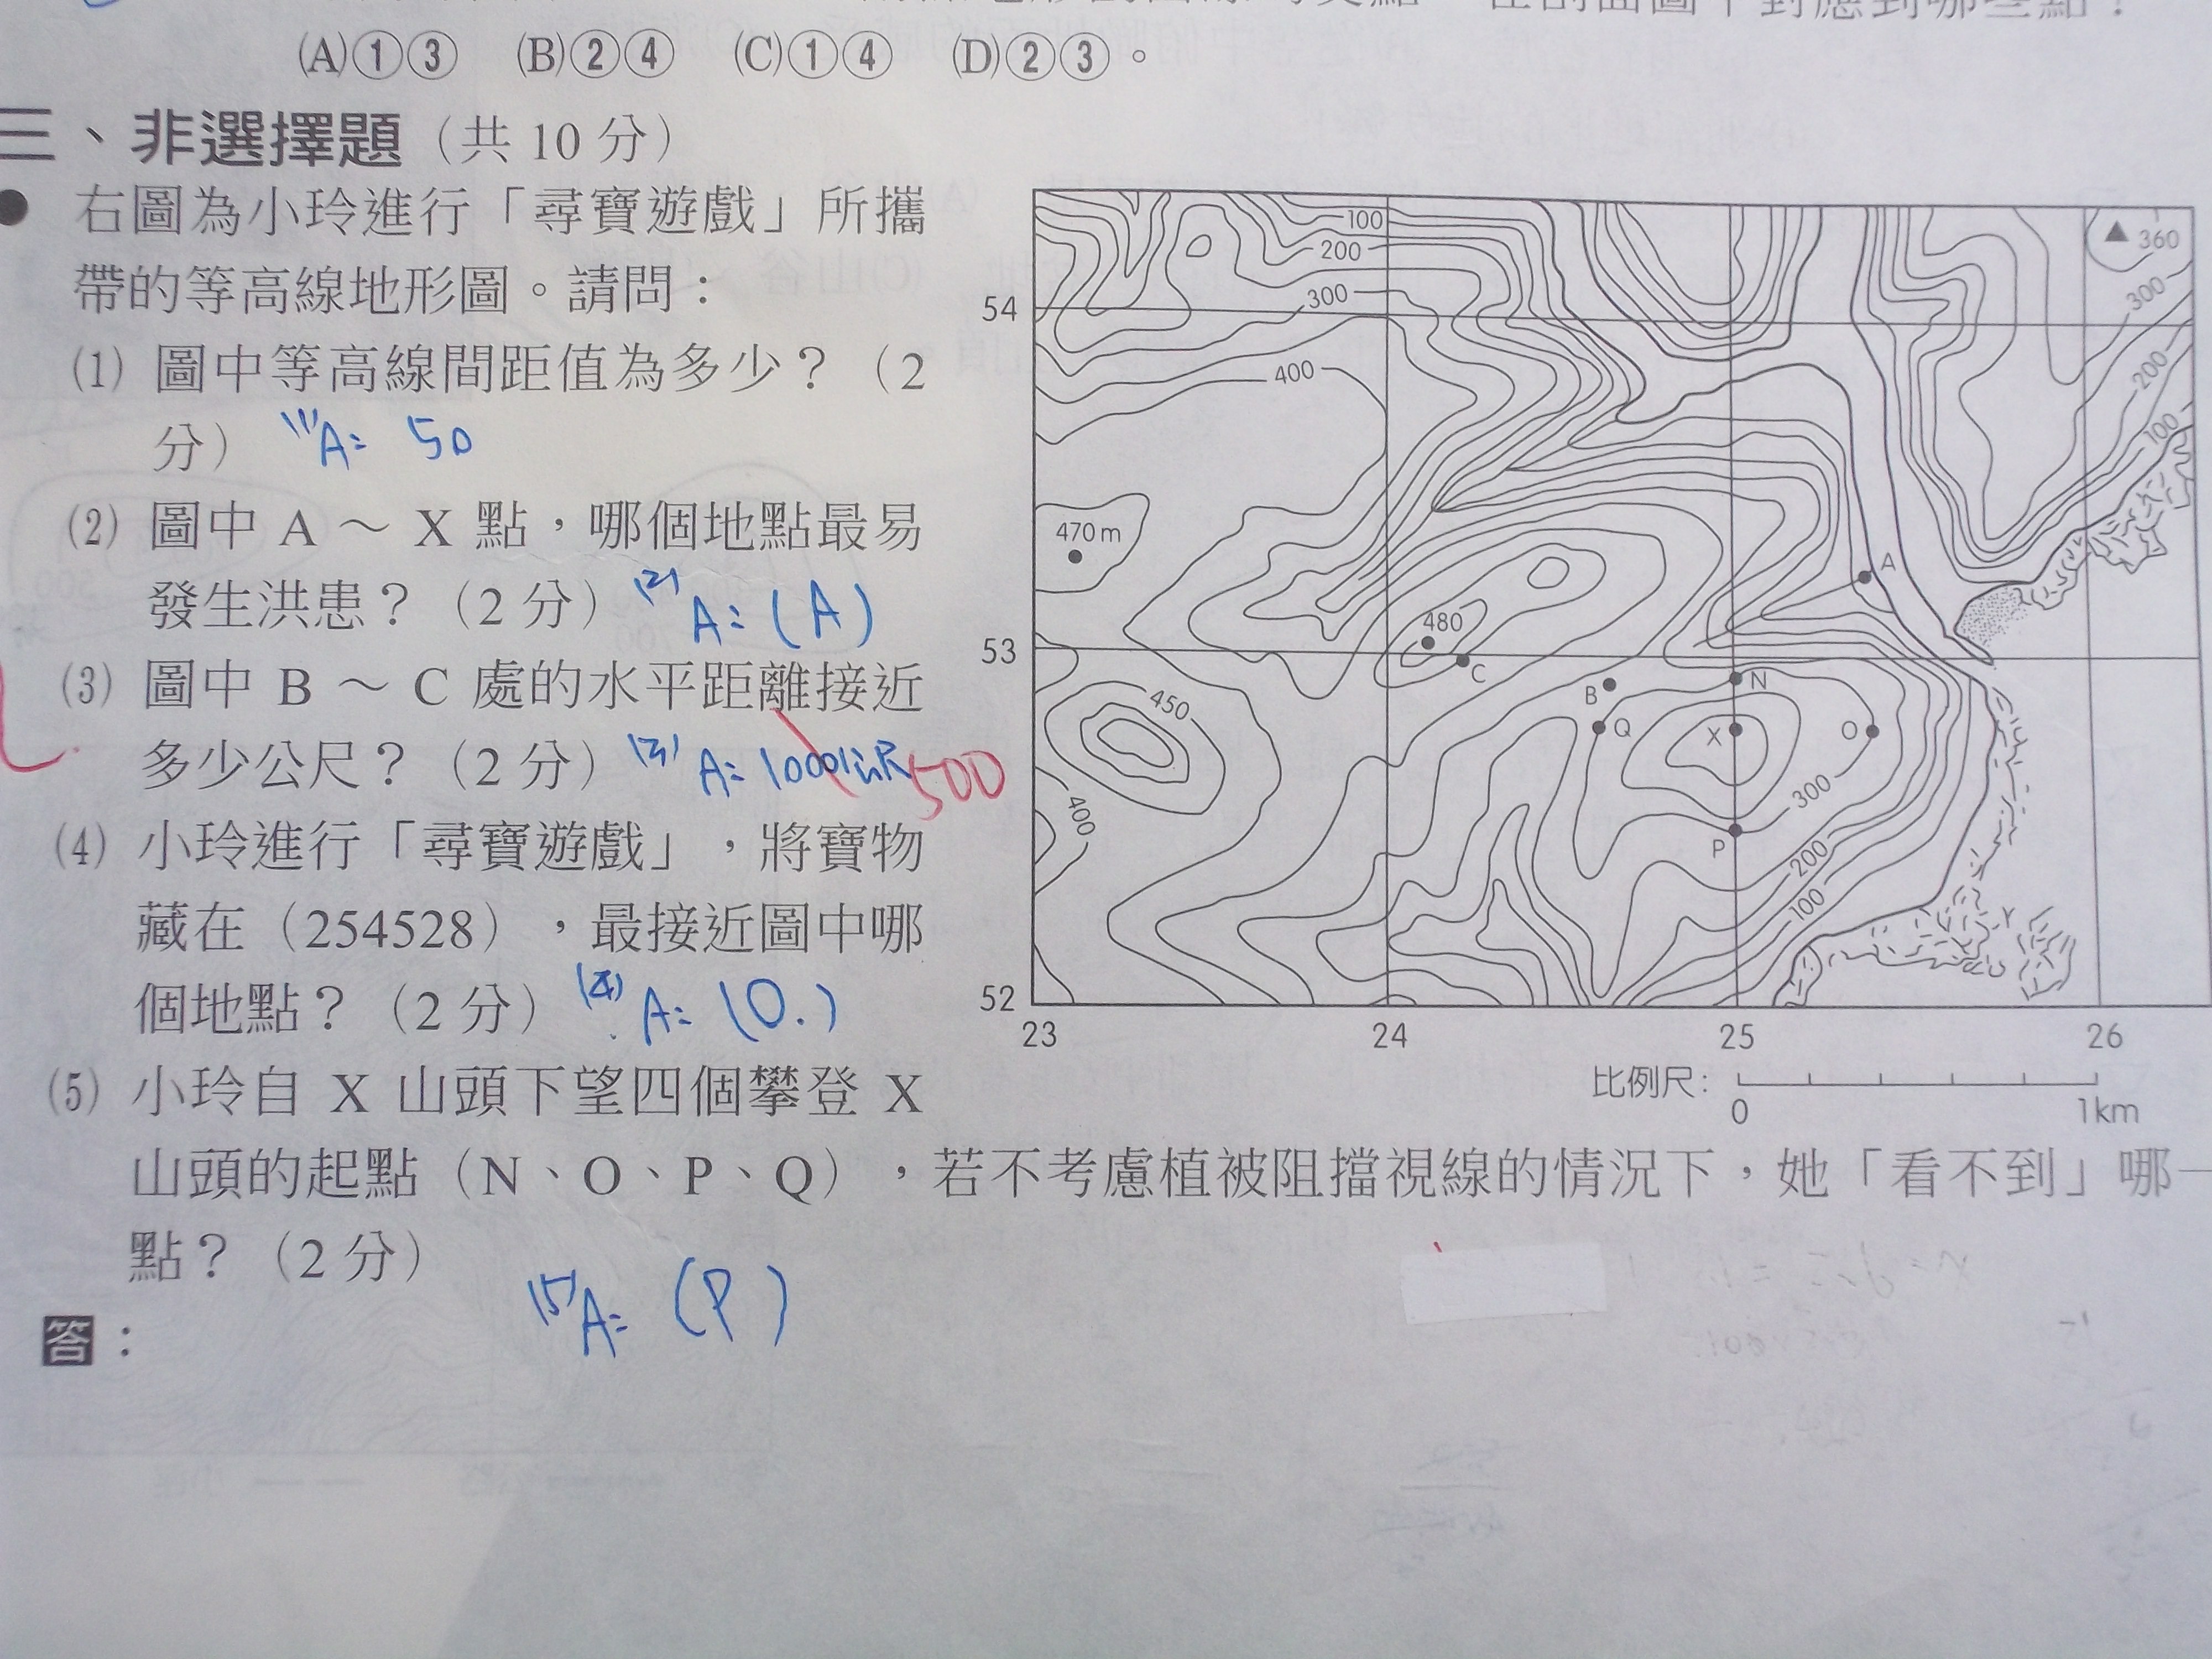 (A)①③ (B)②④ (C)①④ (D)②③。
三、非選擇題(共10分)
● 右圖為小玲進行「尋寶遊戲」所攜
帶的等高線地形圖。請問:
(1) 圖中等高線間距值為多少?(2
分) (1)A= 50
(2) 圖中 A ~ X 點,哪個地點最易
發生洪患?(2分) (2)A=(A)
(3) 圖中 B ~ C 處的水平距離接近
多少公尺?(2分) (3)A=1000公尺 500
(4) 小玲進行「尋寶遊戲」,將寶物
藏在(254528),最接近圖中哪
個地點?(2分) (4)A=(O.)
(5) 小玲自 X 山頭下望四個攀登 X
山頭的起點(N、O、P、Q),若不考慮植被阻擋視線的情況下,她「看不到」哪一
點?(2分)
(5)A=(P)
答:
100
200
300
360
300
54
400
200
100
470 m
A
480
53
C
B
N
Q
X
O
450
300
400
P
200
100
52
23 24 25 26
比例尺:
0 1km